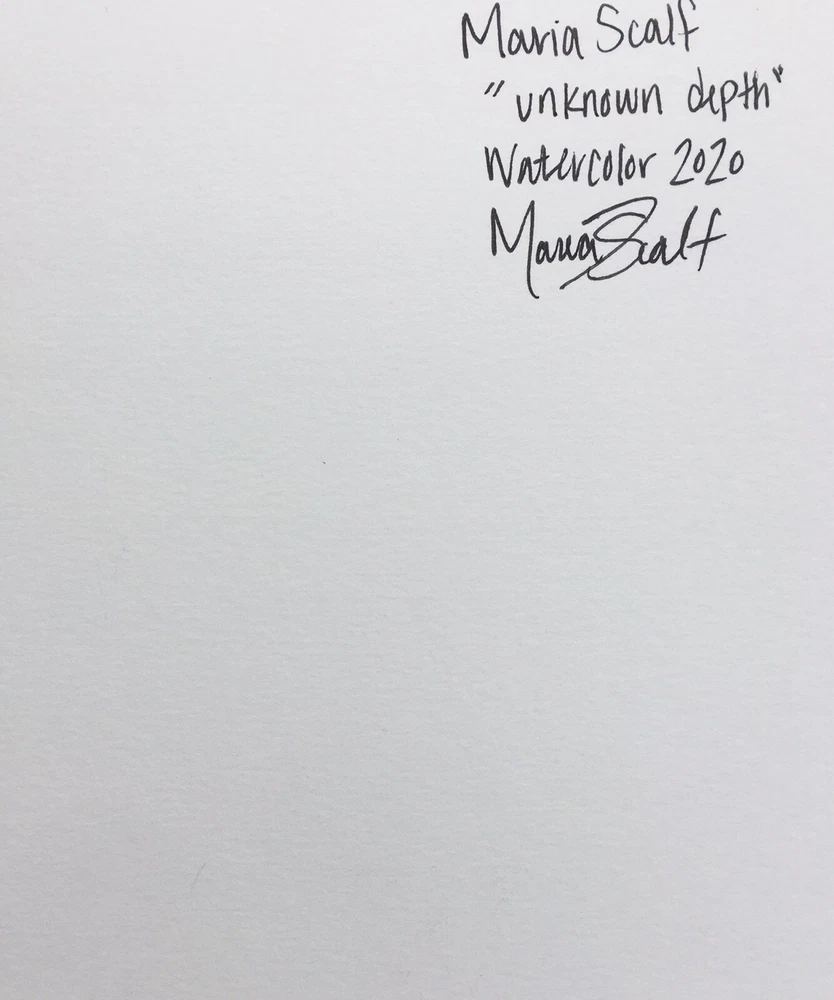 Maria Scalf
"unknown depth"
Watercolor 2020
Maria Scalf